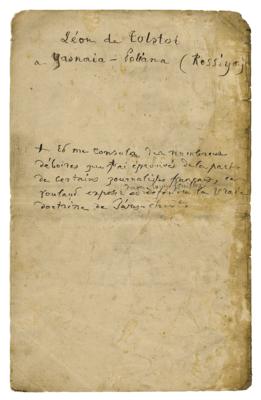 Léon de Tolstoi
a Yasnaia-Poliana (Rossiya)
+ Et me consola des nombreux
déboires que j'ai éprouvés de la part
de certains journalistes français, en
voulant exposer la vraie
doctrine de